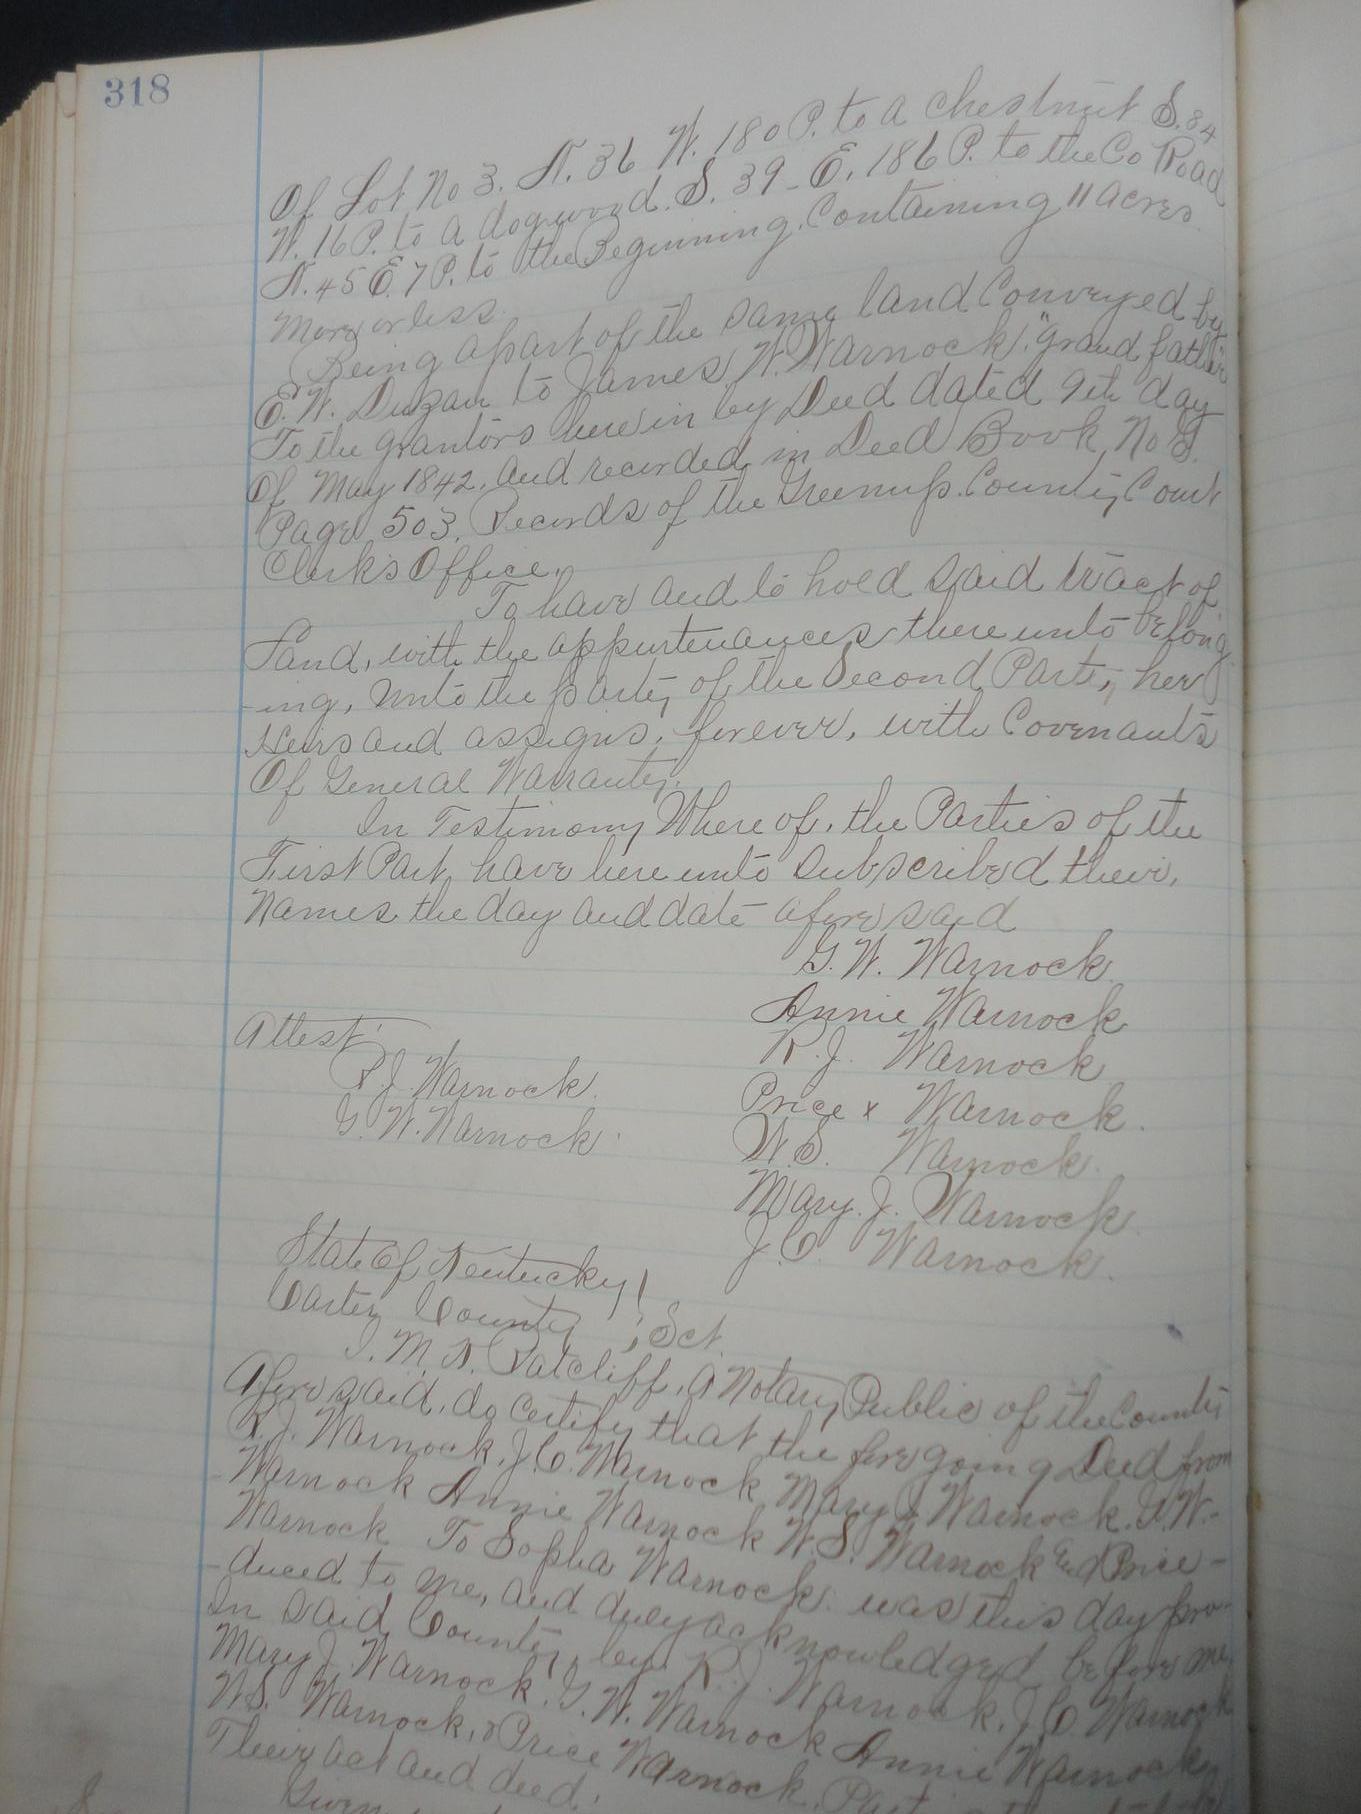 318
Of Lot No 3. N. 36 W. 180 P. to a chestnut S. 84
W. 16 P. to a dogwood. S. 39 - E. 186 P. to the Co Road
N. 45 E. 7 P. to the Beginning. Containing 11 acres
More or less.
Being apart of the same land Conveyed by
E. W. Duzan to James W. Warnock "grand father"
To the grantors herein by Deed dated 9th day
Of May 1842, and recorded in Deed Book No
Page 503, Records of the Greenup County Court
Clerks Office.
To have and to hold said tract of
Land, with the appurtenances there unto belong
-ing, Unto the party of the Second Part, her
Heirs and assigns, forever, with Covenants
Of General Warranty.
In Testimony Where of, the Parties of the
First Part, have here unto Subscribed their,
Names the day and date afore said
G. W. Warnock
Annie Warnock
R. J. Warnock
Price x Warnock.
W. S. Warnock.
Mary. J. Warnock
J. C. Warnock.
Attest
R J. Warnock.
G. W. Warnock.
State of Kentucky
Carter County ; Sct.
I. M. N. Ratcliff, a Notary Public of the County
Afore said, do certify that the fore going Deed from
R. J. Warnock, J. C. Warnock Mary J Warnock. G. W. -
Warnock Annie Warnock W. S. Warnock & Price -
Warnock To Sopha Warnock. was this day pro-
-duced to me, and duly acknowledged before me
In said County, by R. J. Warnock, J. C. Warnock
Mary J. Warnock. G. W. Warnock Annie Warnock
W. S. Warnock, & Price Warnock,
Their act and deed.
Given